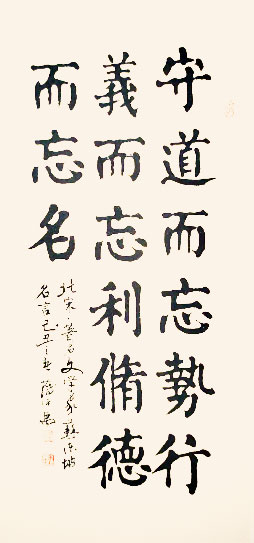 守道而忘勢行
義而忘利脩德
而忘名
北宋著名文学家蘇東坡
名言己丑